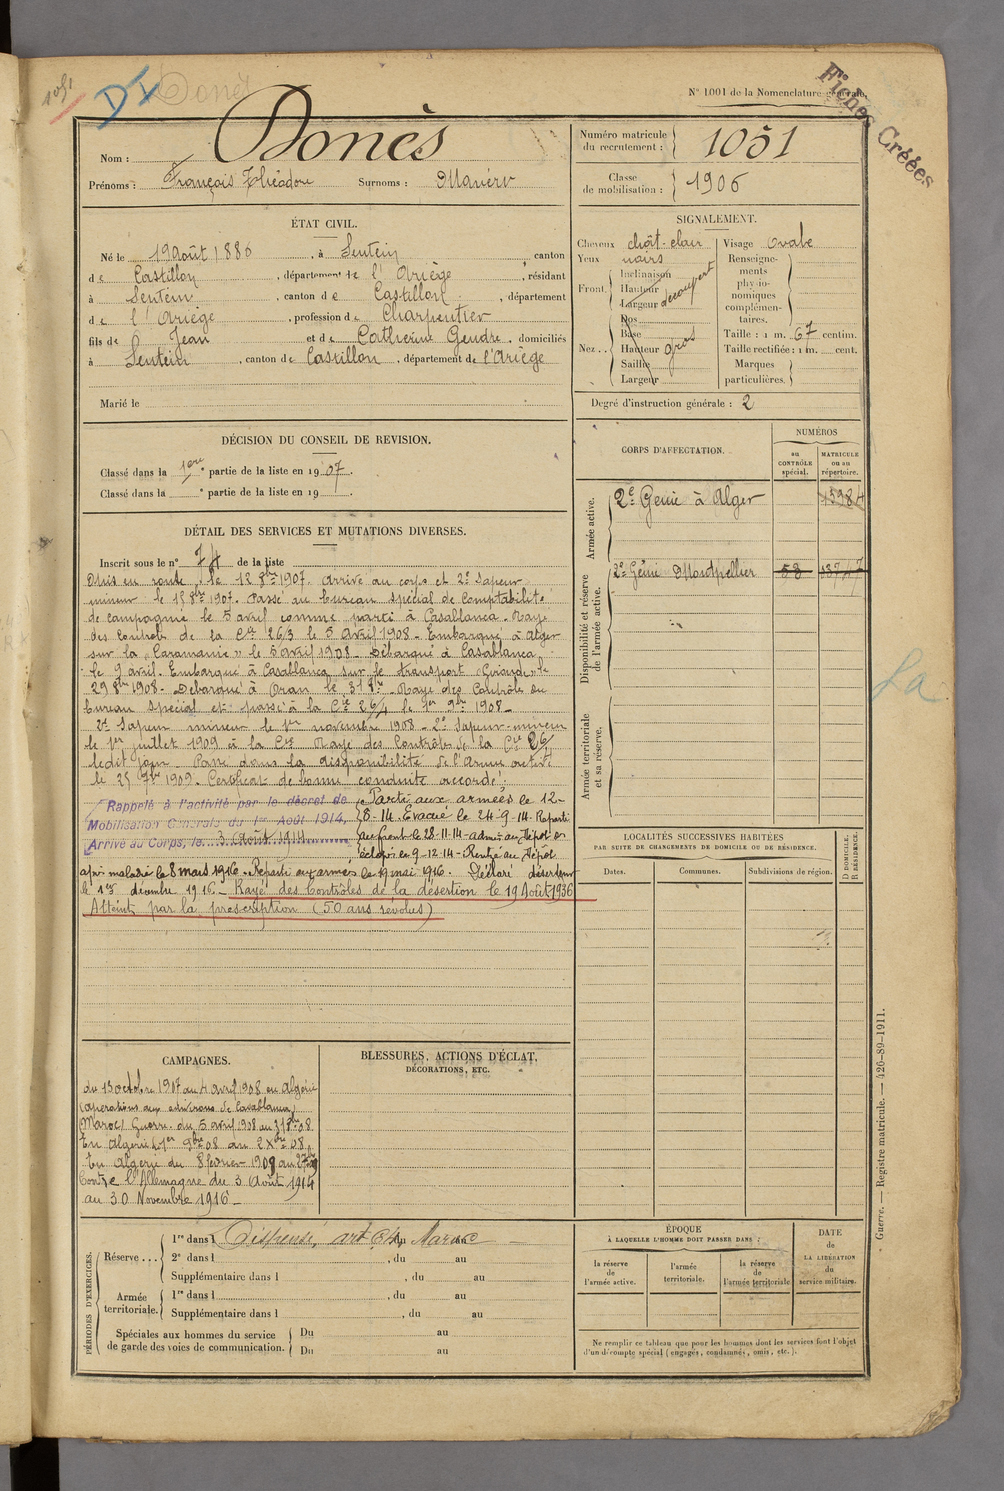 1051
DI
Donès
N° 1001 de la Nomenclature générale.
Fiches Créées
Nom : Donès
Prénoms : François Théodore Surnoms :
Numéro matricule du recrutement : 1051
Classe de mobilisation : 1906
ÉTAT CIVIL.
Né le 19 août 1886, à Sentein, canton
de Castillon, département de l'Ariège, résidant
à Sentein, canton de Castillon, département
de l'Ariège, profession de Charpentier
fils de Jean et de Catherine Gendre, domiciliés
à Sentein, canton de Castillon, département de l'Ariège
Marié le
SIGNALEMENT.
Cheveux chât-clair Visage Ovale
Yeux noirs
Front. Inclinaison Hauteur Largeur découvert
Nez. Dos Base Hauteur Saillie Largeur gros
Renseignements physionomiques complémentaires.
Taille : 1 m. 67 centim.
Taille rectifiée : 1 m. cent.
Marques particulières.
Degré d'instruction générale : 2
DÉCISION DU CONSEIL DE REVISION.
Classé dans la 1ere partie de la liste en 1907.
Classé dans la e partie de la liste en 19 .
CORPS D'AFFECTATION.
NUMÉROS
au CONTRÔLE spécial.
MATRICULE ou au répertoire.
Armée active.
2e Génie à Alger
Disponibilité et réserve de l'armée active.
2e Génie Montpellier 53
Armée territoriale et sa réserve.
La
DÉTAIL DES SERVICES ET MUTATIONS DIVERSES.
Inscrit sous le n° 74 de la liste
Mis en route le 12 8bre 1907. Arrivé au corps et 2e Sapeur
mineur le 15 8bre 1907. Passé au bureau spécial de Comptabilité
de campagne le 5 avril comme parti à Casablanca. Rayé
des Contrôles de la Cie 26/3 le 5 Avril 1908 - Embarqué à Alger
sur la "Caramanie" le 5 avril 1908 - Débarqué à Casablanca
le 9 avril. Embarqué à Casablanca sur le transport "Gironde" le
29 8bre 1908 - Débarqué à Oran le 31 8bre Rayé des Contrôles du
bureau Spécial et passé à la Cie 26/4 le 1er 9bre 1908 -
2e Sapeur mineur le 1er novembre 1908 - 2e Sapeur-mineur
le 1er juillet 1909 à la Cie Rayé des Contrôles de la Cie 26/
ledit jour. Passé dans la disponibilité de l'Armée active
le 25 7bre 1909. Certificat de bonne conduite accordé.
Rappelé à l'activité par le décret de
Mobilisation Générale du 1er Août 1914,
Arrivé au Corps, le 3 Août 1914
Parti aux armées le 12-
8-14. Evacué le 24-9-14. Reparti
au front le 28-11-14 - admis au Dépôt des
éclopés le 9-12-14 - Rentré au Dépôt
malade le 8 mars 1916. Reparti aux armées le 19 mai 1916. Déclaré déserteur
le 1er décembre 1916. Rayé des Contrôles de la désertion le 19 Août 1936
Atteint par la prescription (50 ans révolus)
LOCALITÉS SUCCESSIVES HABITÉES
PAR SUITE DE CHANGEMENTS DE DOMICILE OU DE RÉSIDENCE.
Dates. Communes. Subdivisions de région. D DOMICILE. R RÉSIDENCE.
CAMPAGNES.
du 15 octobre 1907 au 4 avril 1908 en Algérie
(opérations aux environs de Casablanca)
(Maroc) Guerre. du 5 avril 1908 au 31 8bre 08.
En Algérie du 1er 9bre 08 au 2 Xbre 08.
En Algérie du 8 février 1909 au
Contre l'Allemagne du 3 Août 1914
au 30 Novembre 1916 -
BLESSURES, ACTIONS D'ÉCLAT,
DÉCORATIONS, ETC.
PÉRIODES D'EXERCICES.
Réserve... 1re dans l Dispensé, du Maroc au
2e dans l , du au
Supplémentaire dans l , du au
Armée territoriale. 1re dans l , du au
Supplémentaire dans l , du au
Spéciales aux hommes du service de garde des voies de communication. Du au
Du au
ÉPOQUE
À LAQUELLE L'HOMME DOIT PASSER DANS :
la réserve de l'armée active.
l'armée territoriale.
la réserve de l'armée territoriale
DATE de LA LIBÉRATION du service militaire.
Ne remplir ce tableau que pour les hommes dont les services font l'objet
d'un décompte spécial (engagés, condamnés, omis, etc.).
Guerre. — Registre matricule. — 426-89-1911.